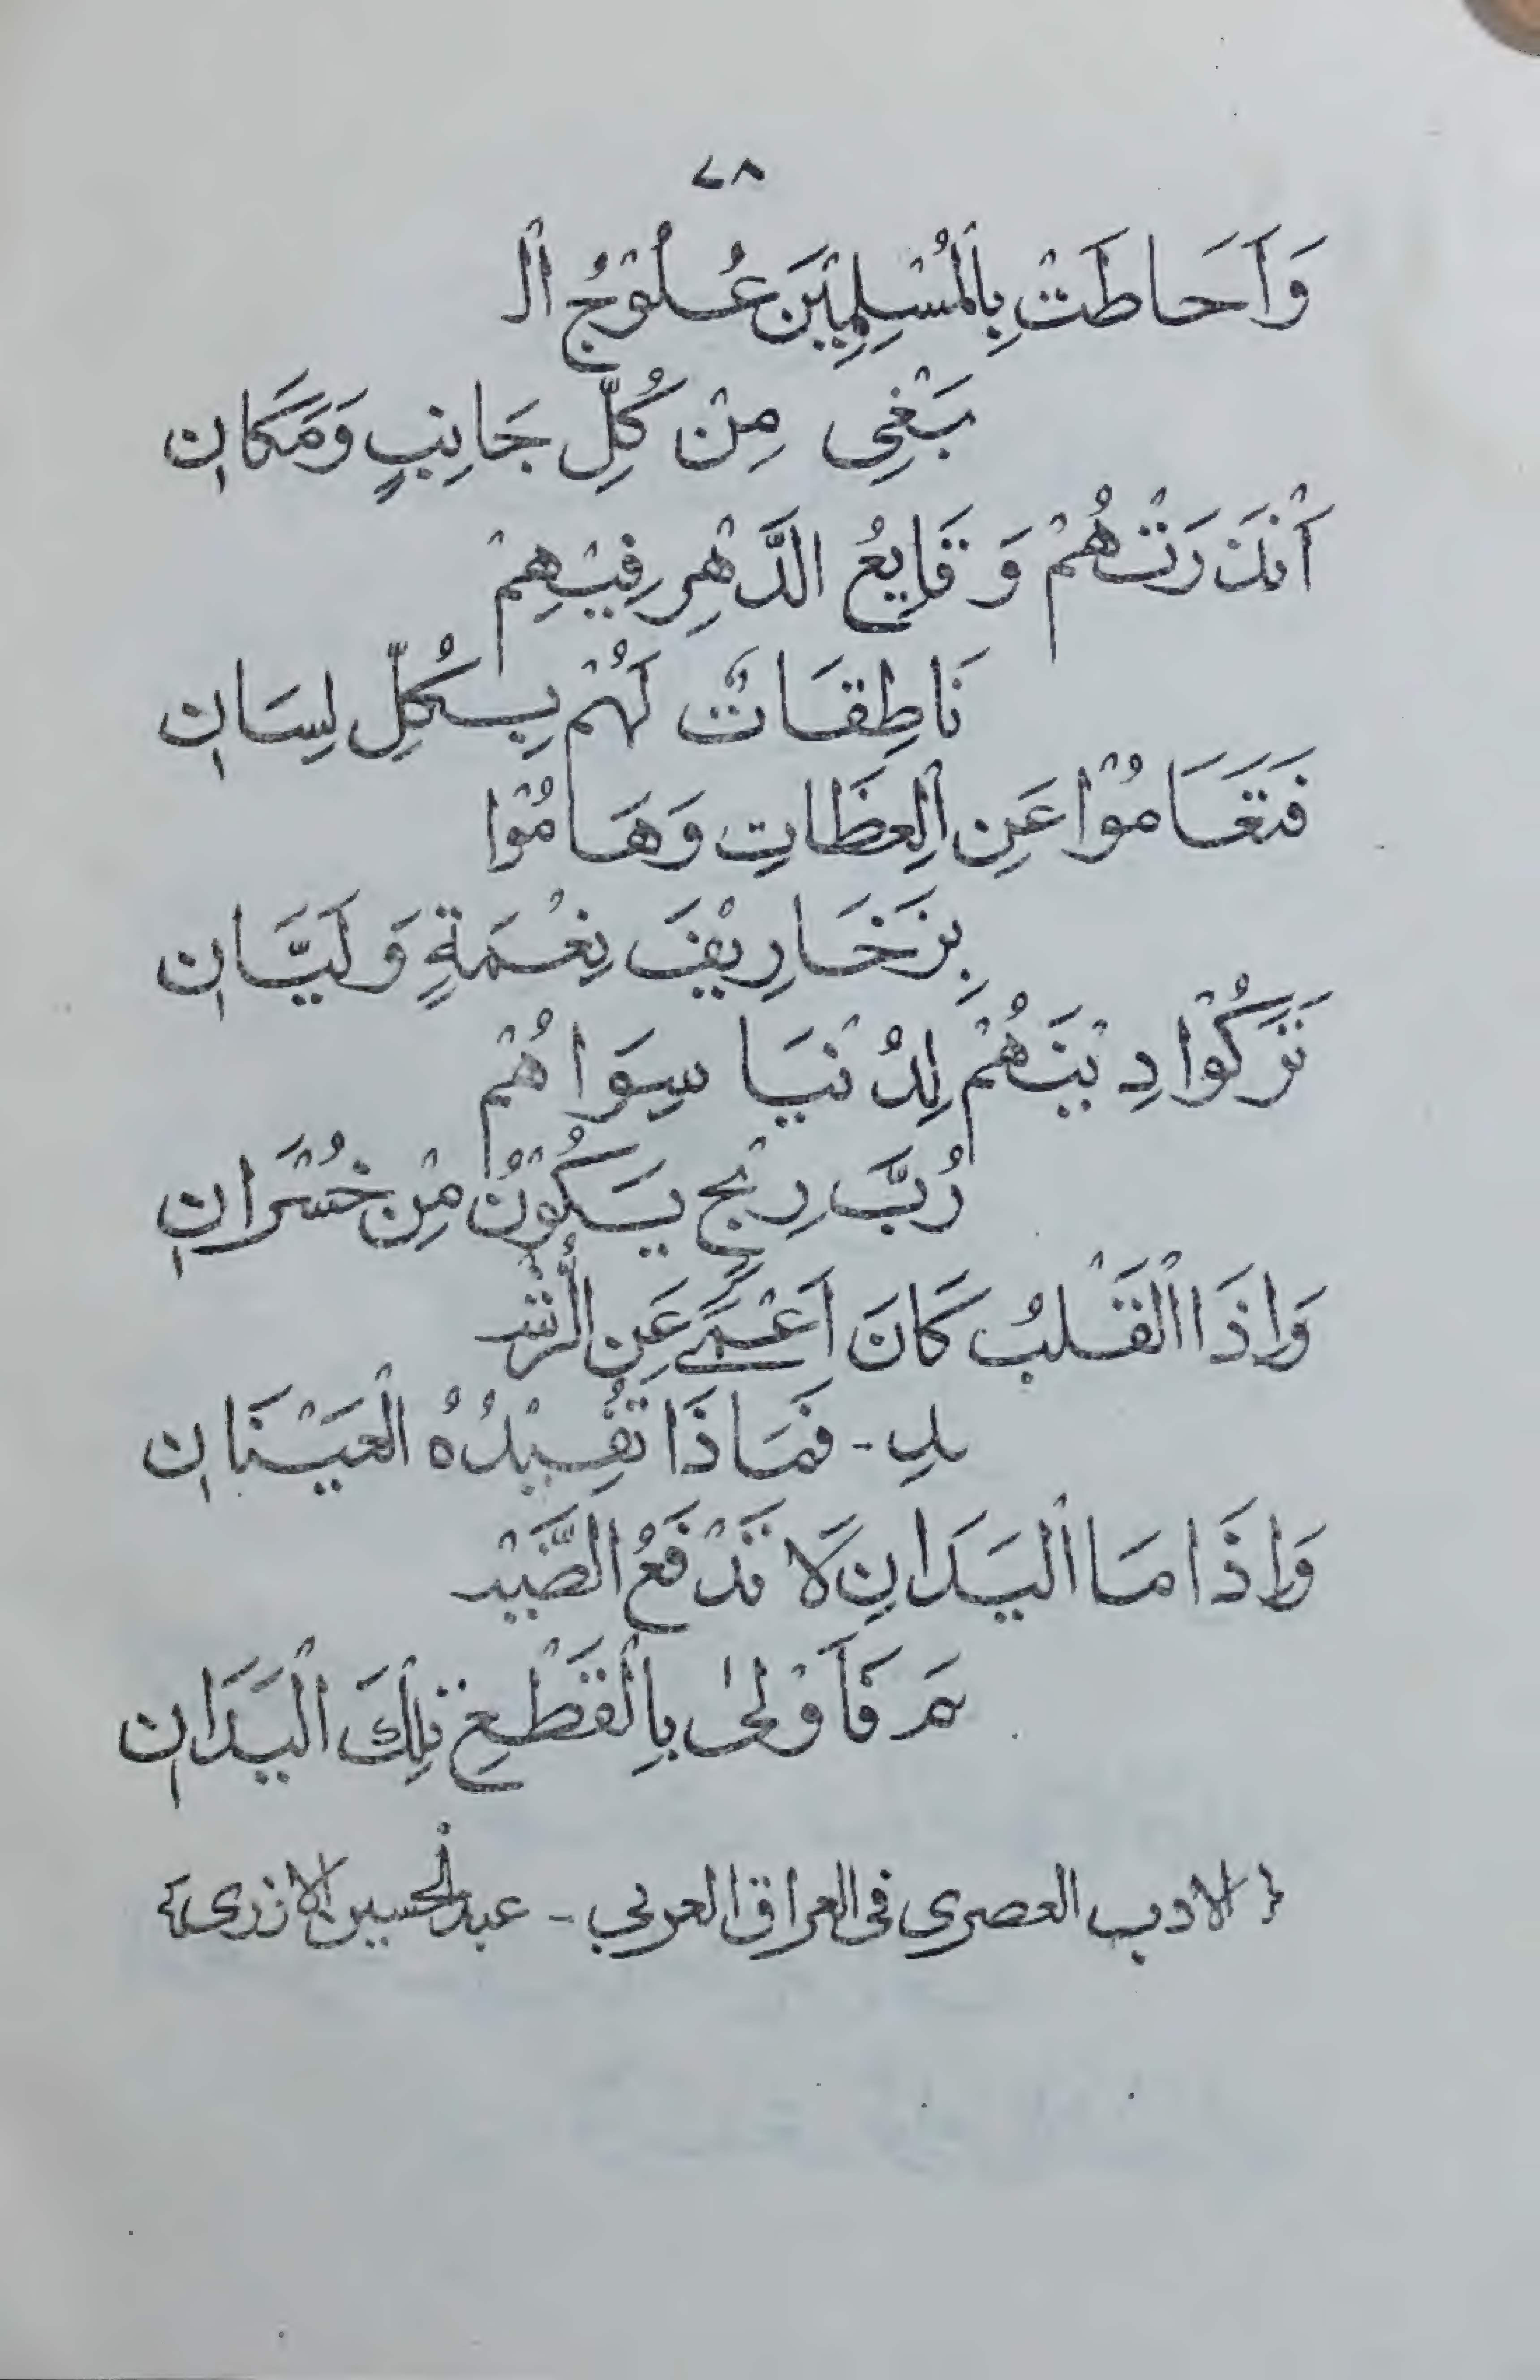 ٧٨
وَاَحَاطَتْ بِالْمُسْلِمِيْنَ عُلُوْجُ الْـ
بَغْيِ مِنْ كُلِّ جَانِبٍ وَمَكَانِ
أَنْذَرَتْهُمْ وَقَايِعُ الدَّهْرِ فِيْهِمْ
نَاطِقَاتٌ لَهُمْ بِكُلِّ لِسَانِ
فَتَعَامُوْا عَنِ الْعِظَاتِ وَهَامُوْا
بِزَخَارِيْفَ نِعْمَةٍ وَلَيَّانِ
تَرَكُوْا دِيْنَهُمْ لِدُنْيَا سِوَاهُمْ
رُبَّ رِبْحٍ يَكُوْنُ مِنْ خُسْرَانِ
وَاِذَا الْقَلْبُ كَانَ اَعْمَىٰ عَنِ الْرُّشْـ
ـدِ - فَمَاذَا تُفِيْدُهُ الْعَيْنَانِ
وَاِذَا مَا الْيَدَانِ لَا تَدْفَعُ الضَّيْـ
ـمَ فَاَوْلىٰ بِالْقَطْعِ تِلْكَ الْيَدَانِ
{ الادب العصري في العراق العربي - عبدالحسين الازري }